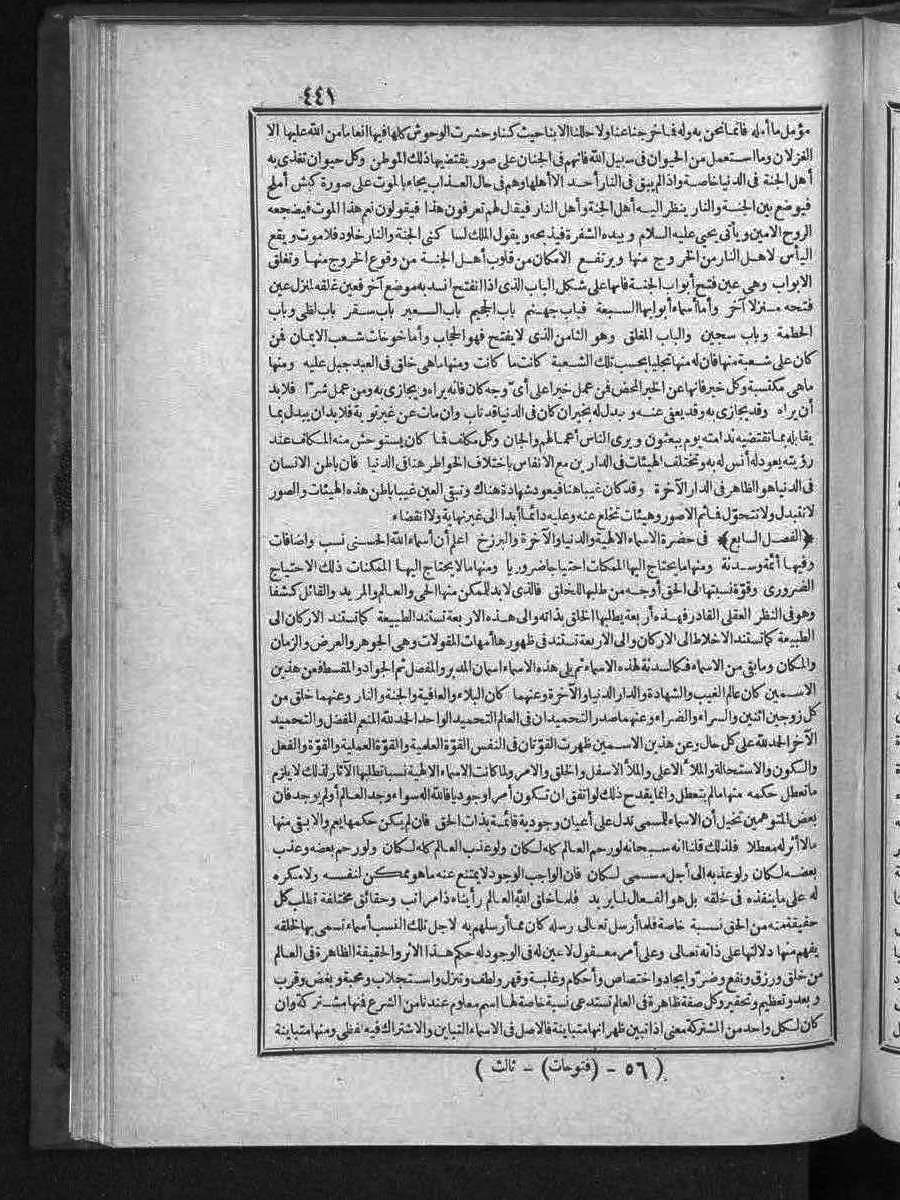 ٤٤١
مؤمل ما أمله فانما نحن به وله فما خرجنا عنا ولا حللنا الا بنا حيث كنا وحشرت الوحوش كلها فيها انعاما من الله عليها الا
الغزلان وما استعمل من الحيوان فى سبيل الله فانهم فى الجنان على صور يقتضيها ذلك الموطن وكل حيوان تغذى به
أهل الجنة فى الدنيا خاصة واذا لم يبق فى النار أحد الا أهلها وهم فى حال العذاب يجاء بالموت على صورة كبش أملح
فيوضع بين الجنة والنار ينظر اليه أهل الجنة وأهل النار فيقال لهم تعرفون هذا فيقولون نعم هذا الموت فيضجعه
الروح الامين ويأتى يحيى عليه السلام وبيده الشفرة فيذبحه ويقول الملك لساكنى الجنة والنار خلود فلا موت ويقع
اليأس لاهل النار من الخروج منها ويرتفع الامكان من قلوب أهل الجنة من وقوع الخروج منها وتغلق
الابواب وهى عين فتح أبواب الجنة فانها على شكل الباب الذى اذا انفتح انسد به موضع آخر فعين غلقه لمنزل عين
فتحه منزلا آخر وأما أسماء أبوابها السبعة فباب جهنم باب الجحيم باب السعير باب سقر باب لظى وباب
الحطمة وباب سجين والباب المغلق وهو الثامن الذى لا يفتح فهو الحجاب وأما خوخات شعب الايمان فمن
كان على شعبة منها فان له منها تجليا بحسب تلك الشعبة كانت ما كانت ومنها ما هى خلق فى العبد جبل عليه ومنها
ما هى مكتسبة وكل خير فانها عن الخير المحض فمن عمل خيرا على أىّ وجه كان فانه يراه ويجازى به ومن عمل شرّا فلا بد
أن يراه وقد يجازى به وقد يعفى عنه ويبدل له بخير ان كان فى الدنيا قد تاب وان مات عن غير توبة فلا بد ان يبدل بما
يقابله بما تقتضيه ندامته يوم يبعثون ويرى الناس أعمالهم والجان وكل مكلف فما كان يستوحش منه المكلف عند
رؤيته يعود له أنس له به وتختلف الهيئات فى الدارين مع الانفاس باختلاف الخواطر هنا فى الدنيا فان باطن الانسان
فى الدنيا هو الظاهر فى الدار الآخرة وقد كان غيبا هنا فيعود شهادة هناك وتبقى العين غيبا باطن هذه الهيئات والصور
لا تتبدل ولا تتحوّل فما ثم الا صور وهيئات تخلع عنه وعليه دائما أبدا الى غير نهاية ولا انقضاء
﴿الفصل السابع﴾ فى حضرة الاسماء الالهية والدنيا والآخرة والبرزخ اعلم أن أسماء الله الحسنى نسب واضافات
وفيها أئمة وسدنة ومنها ما يحتاج اليها الممكنات احتياجا ضروريا ومنها ما لا يحتاج اليها الممكنات ذلك الاحتياج
الضرورى وقوّة نسبتها الى الحق أوجه من طلبها للخلق فالذى لا بد للممكن منها الحى والعالم والمريد والقائل كشفا
وهو فى النظر العقلى القادر فهذه أربعة يطلبها الخلق بذاته والى هذه الاربعة تستند الطبيعة كما تستند الاركان الى
الطبيعة كما تستند الاخلاط الى الاركان والى الاربعة تستند فى ظهورها أمهات المقولات وهى الجوهر والعرض والزمان
والمكان وما بقى من الاسماء فكالسدنة لهذه الاسماء ثم يلى هذه الاسماء اسمان المدبر والمفصل ثم الجواد والمقسط فعن هذين
الاسمين كان عالم الغيب والشهادة والدار الدنيا والآخرة وعنهما كان البلاء والعافية والجنة والنار وعنهما خلق من
كل زوجين اثنين والسراء والضراء وعنهما صدر التحميدان فى العالم التحميد الواحد الحمد لله المنعم المفضل والتحميد
الآخر الحمد لله على كل حال وعن هذين الاسمين ظهرت القوّتان فى النفس القوّة العلمية والقوّة العملية والقوّة والفعل
والكون والاستحالة والملأ الاعلى والملأ الاسفل والخلق والامر ولما كانت الاسماء الالهية نسبا تطلبها الآثار لذلك لا يلزم
ما تعطل حكمه منها ما لم يتعطل وانما يقدح ذلك لو اتفق ان تكون أمرا وجوديا فالله اله سواء وجد العالم أو لم يوجد فان
بعض المتوهمين تخيل أن الاسماء للمسمى تدل على أعيان وجودية قائمة بذات الحق فان لم يكن حكمها يعم والا بقى منها
ما لا أثر له معطلا فلذلك قلنا انه سبحانه لو رحم العالم كله لكان ولو عذب العالم كله لكان ولو رحم بعضه وعذب
بعضه لكان ولو عذبه الى أجل مسمى لكان فان الواجب الوجود لا يمتنع عنه ما هو ممكن لنفسه ولا مكره
له على ما ينفذه فى خلقه بل هو الفعال لما يريد فلما خلق الله العالم رأيناه ذا مراتب وحقائق مختلفة تطلب كل
حقيقة منه من الحق نسبة خاصة فلما أرسل تعالى رسله كان مما أرسلهم به لاجل تلك النسب أسماء تسمى بها لخلقه
يفهم منها دلالتها على ذاته تعالى وعلى أمر معقول لا عين له فى الوجود له حكم هذا الاثر والحقيقة الظاهرة فى العالم
من خلق ورزق ونفع وضرّ وايجاد واختصاص وأحكام وغلبة وقهر ولطف وتنزل واستجلاب ومحبة وبغض وقرب
وبعد وتعظيم وتحقير وكل صفة ظاهرة فى العالم تستدعى نسبة خاصة لها اسم معلوم عندنا من الشرع فنها مشتركة وان
كان لكل واحد من المشتركة معنى اذا تبين ظهر انها متباينة فالاصل فى الاسماء التباين والاشتراك فيه لفظى ومنها متباينة
( ٥٦ - (فتوحات) - ثالث )